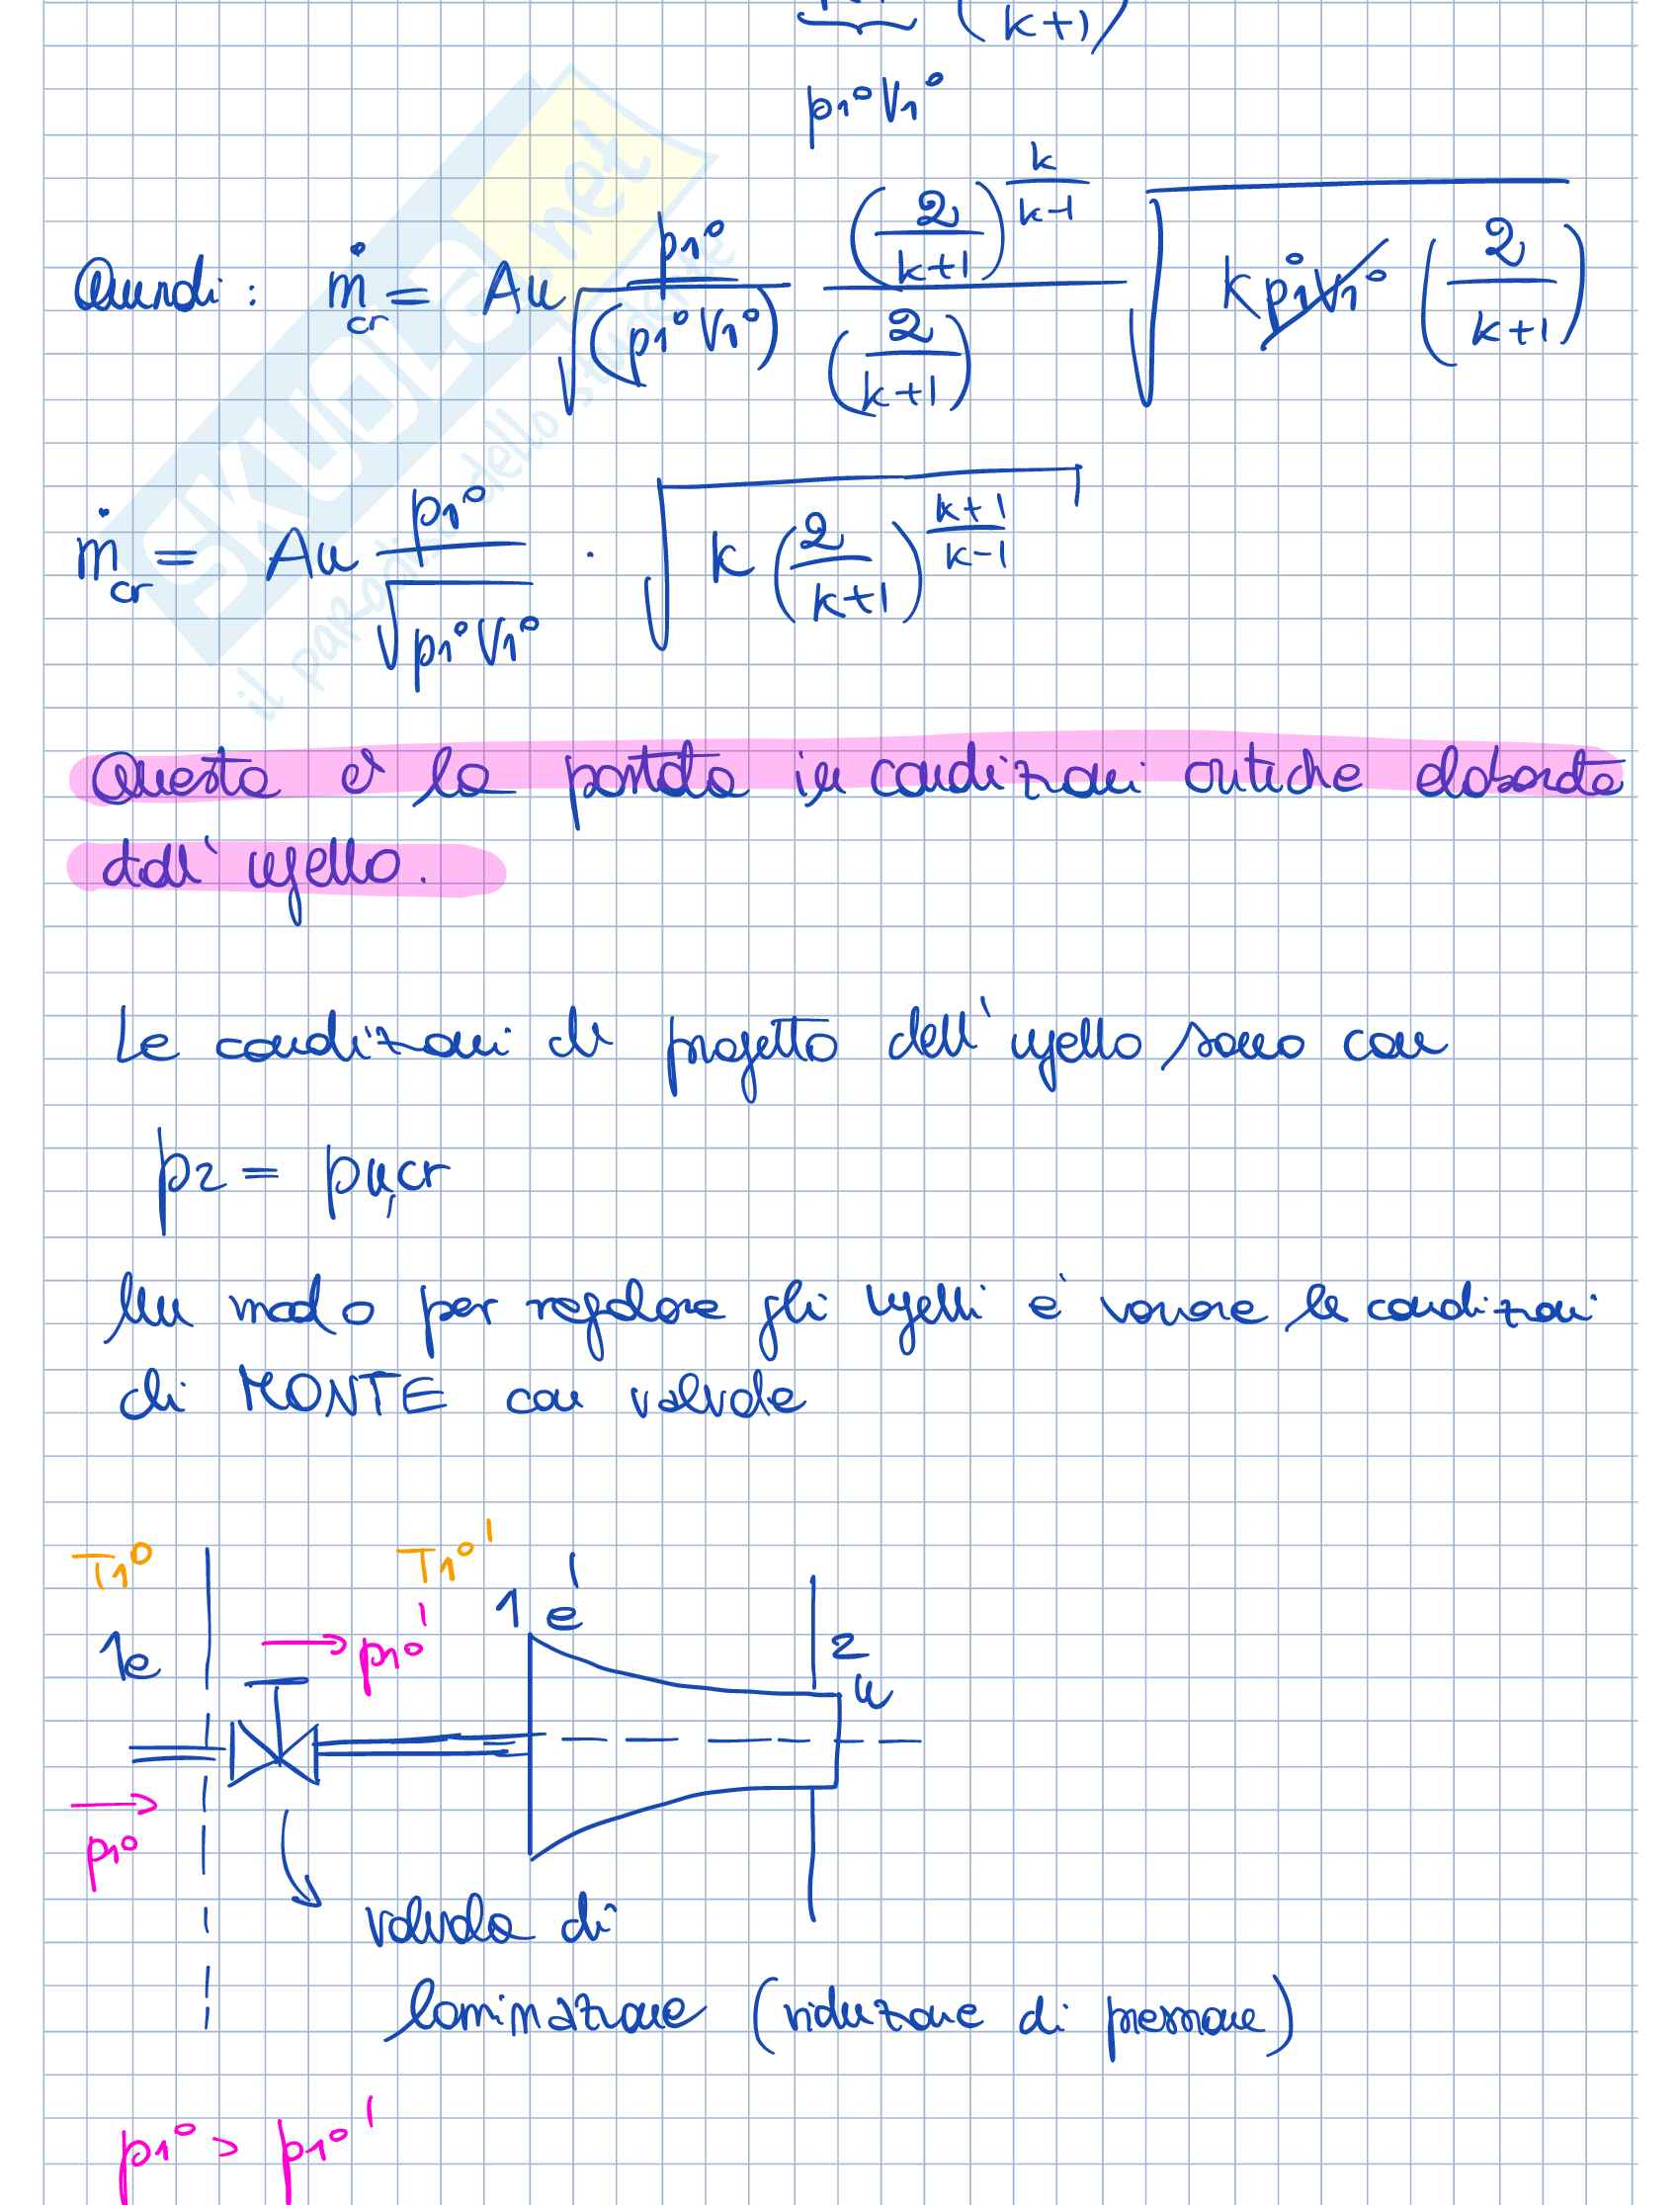 (k+1)
p1° V1°
Quindi : ṁcr = Au p1° / √(p1° V1°) (2/(k+1))^(k/(k-1)) / (2/(k+1)) √(k p1° V1° (2/(k+1)))
ṁcr = Au p1° / √(p1° V1°) · √(k (2/(k+1))^((k+1)/(k-1)))
Questa è la portata in condizioni critiche elaborata
dall' ugello.
Le condizioni di progetto dell' ugello sono con
p2 = pu,cr
Un modo per regolare gli ugelli è variare le condizioni
di MONTE con valvole
T1° T1°'
1 e'
1e p1°' 2
u
p1°
valvola di
laminazione (riduzione di pressione)
p1° > p1°'
SKUOLA.net
il paradiso dello studente